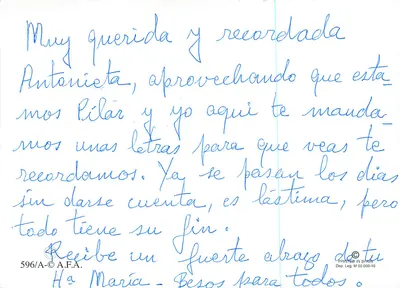 Muy querida y recordada
Antonieta, aprovechando que esta-
mos Pilar y yo aqui te manda-
mos unas letras para que veas te
recordamos. Ya se pasan los dias
sin darse cuenta, es lástima, pero
todo tiene su fin.
Recibe un fuerte abrazo de tu
596/A-© A.F.A.
Hª María - Besos para todos.